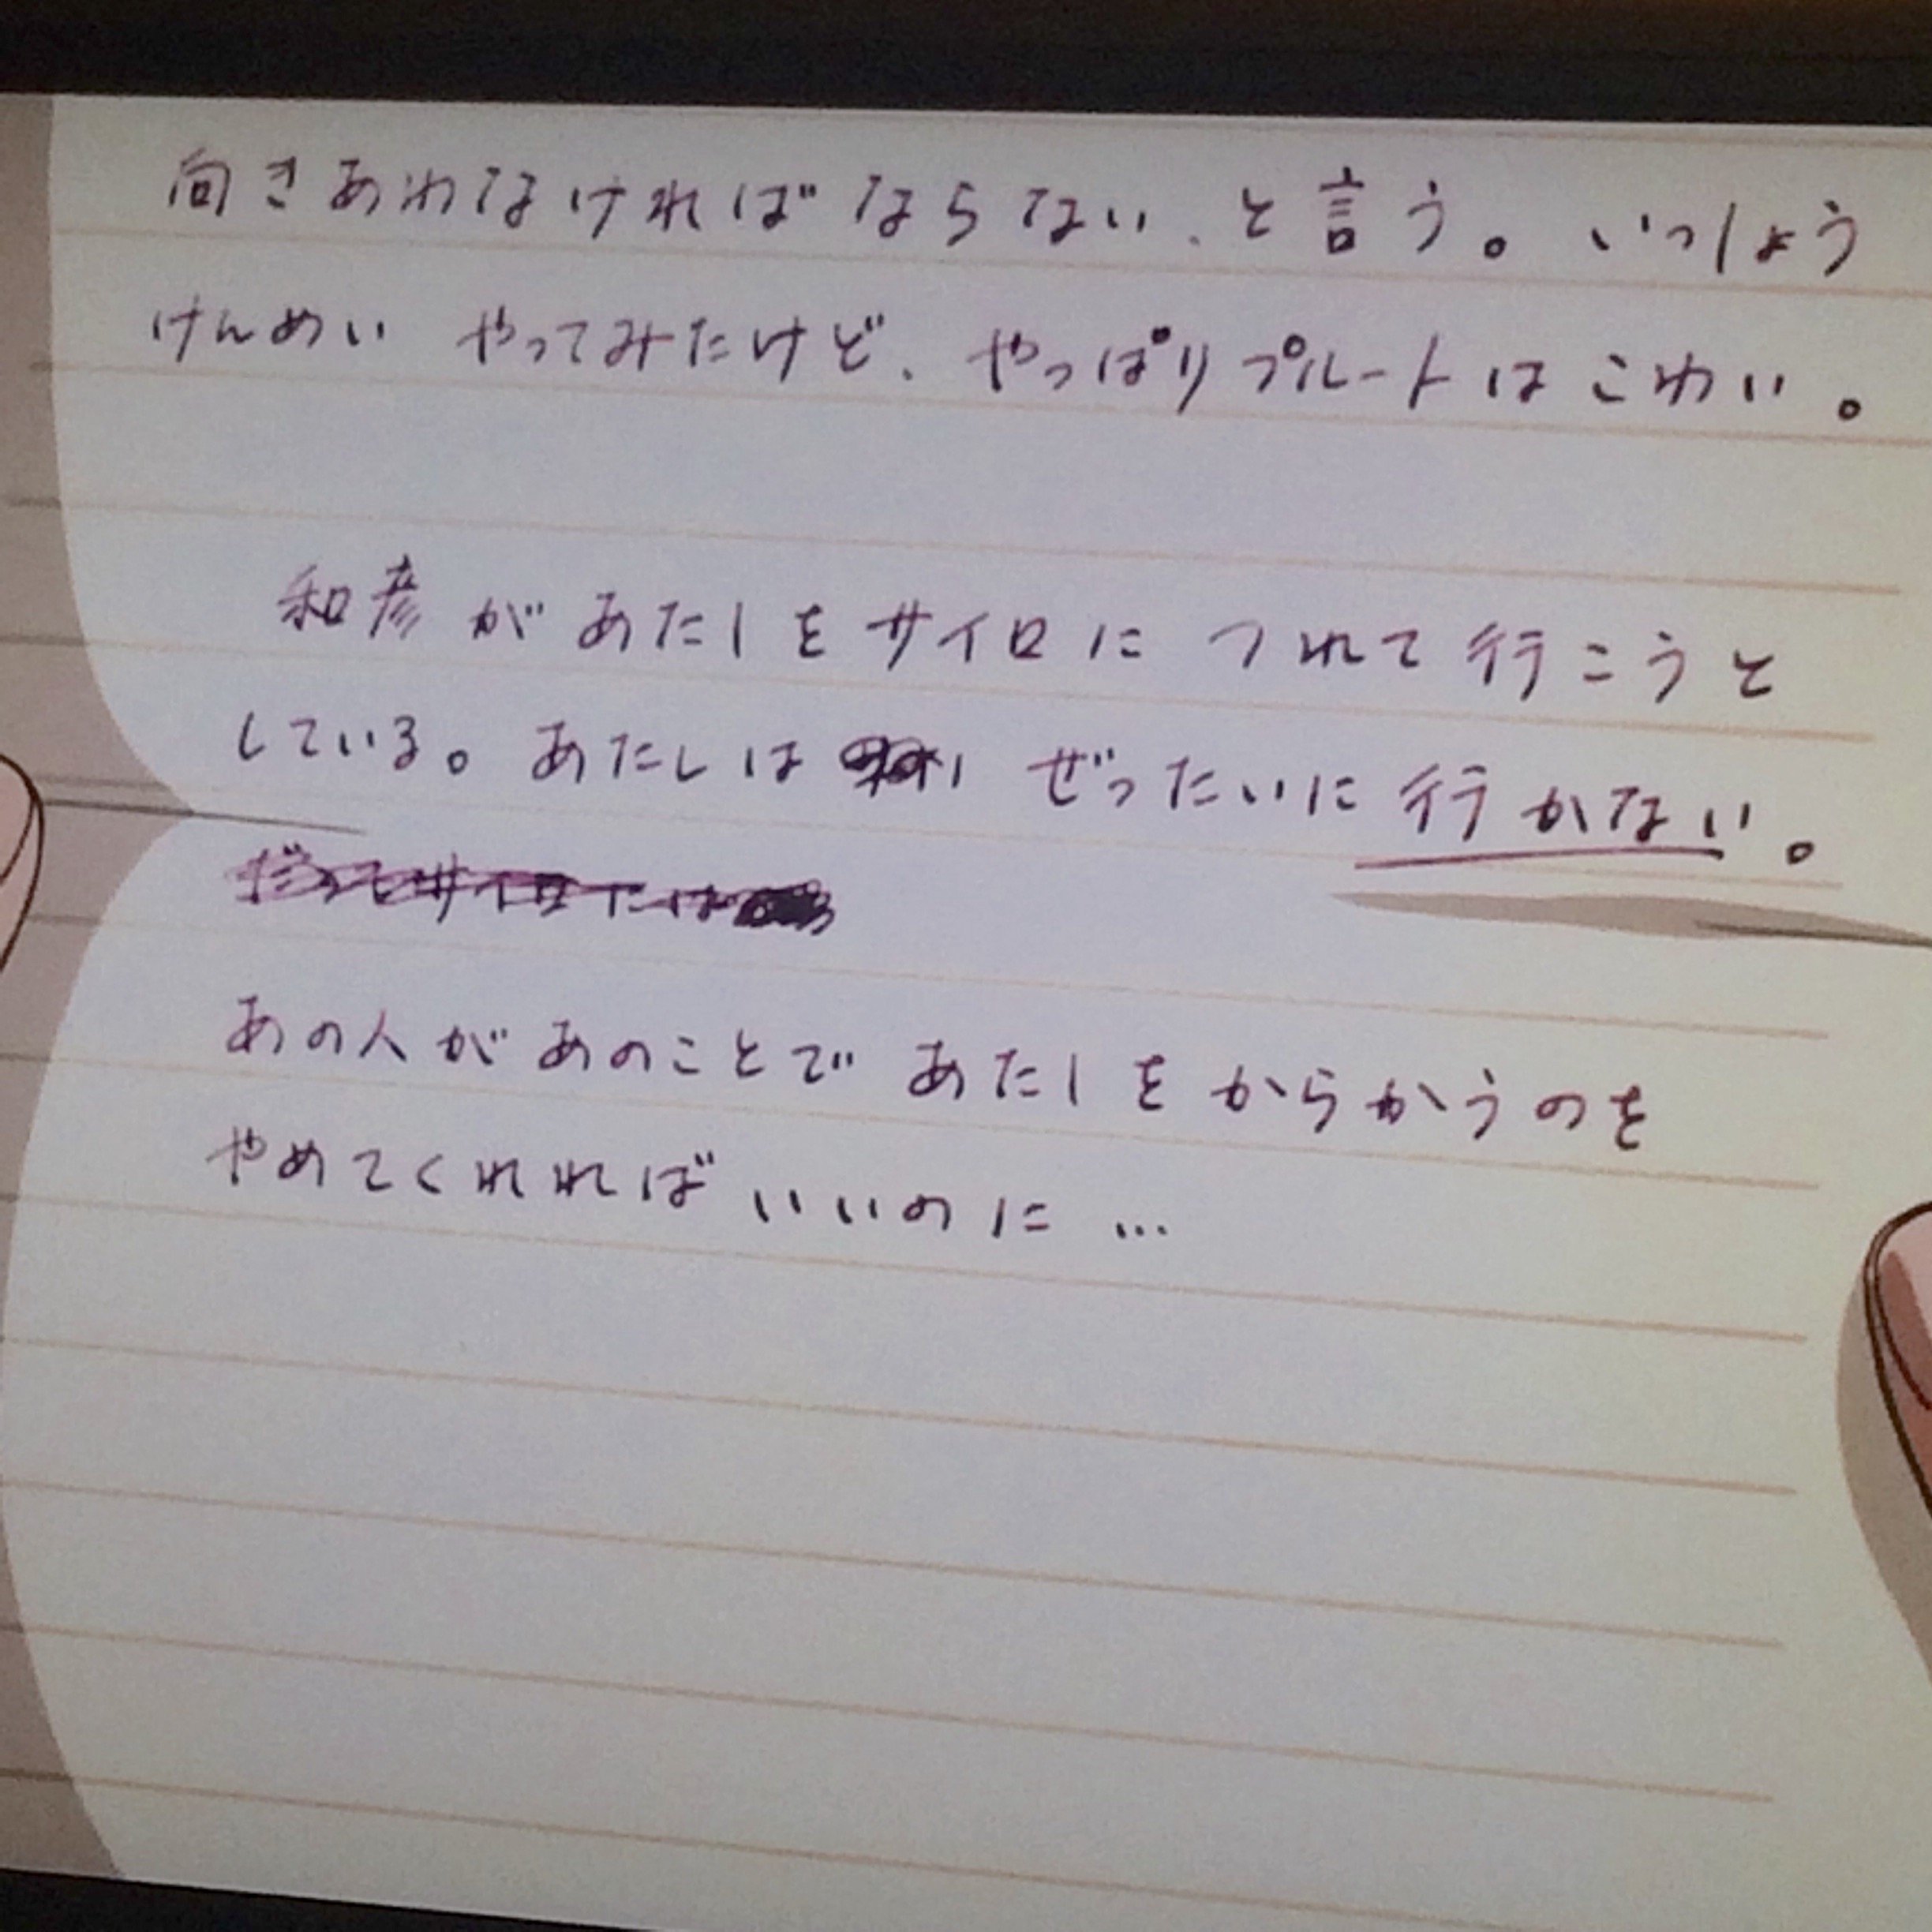 向きあわなければならない、と言う。いっしょう
けんめい やってみたけど、やっぱりプルートはこわい。
和彦があたしをサイロにつれて行こうと
している。あたしは ぜったいに行かない。
だってサイロには
あの人があのことであたしをからかうのを
やめてくれればいいのに…